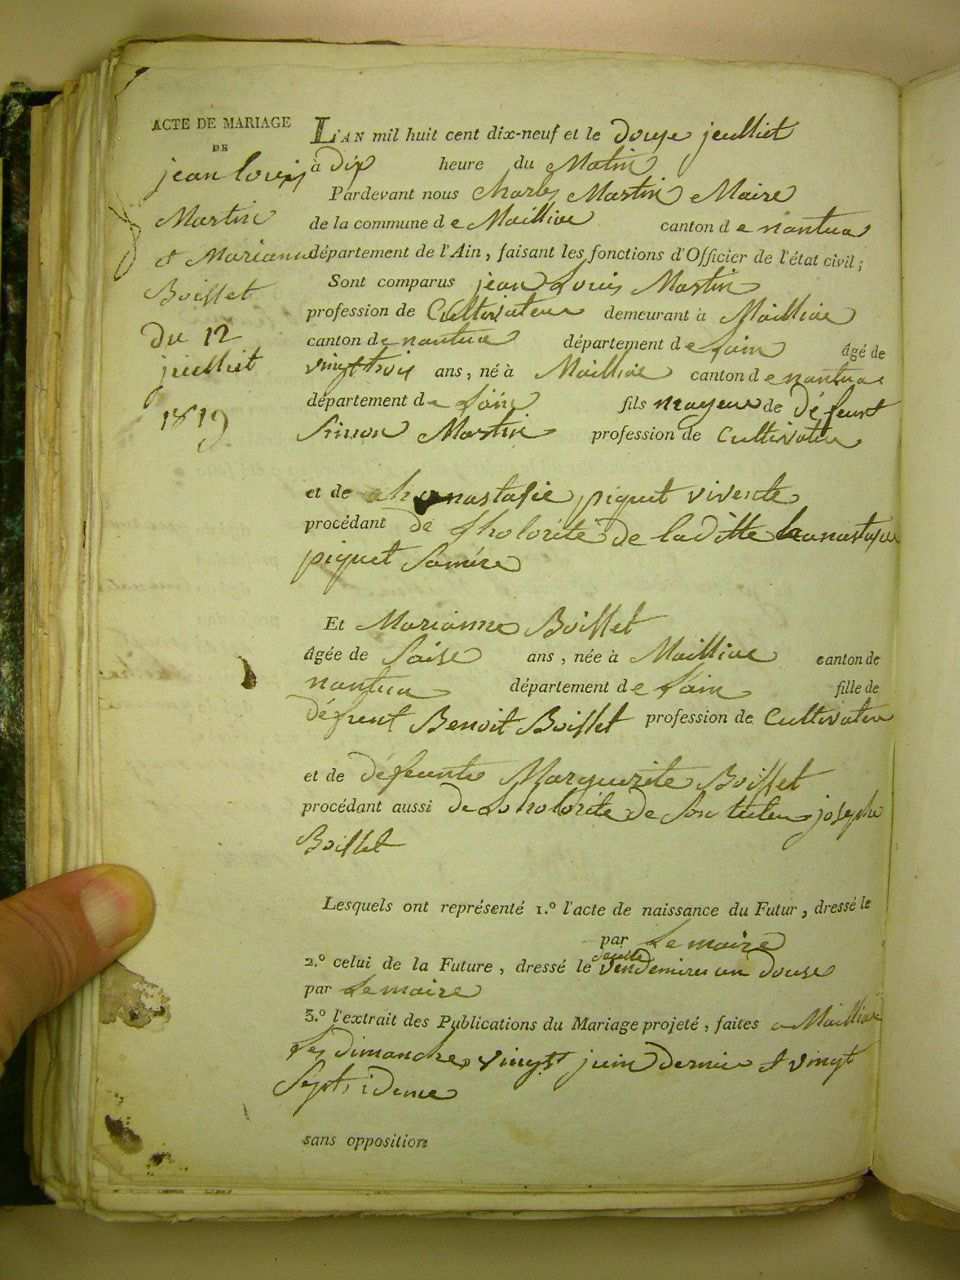 ACTE DE MARIAGE
DE
jean louis
Martin
et Marianne
Boisset
du 12
juilliet
1819
L'AN mil huit cent dix-neuf et le douze jeulliet
à dix heure du Matin
Pardevant nous Charles Martin Maire
de la commune de Mailliac canton de nantua
département de l'Ain, faisant les fonctions d'Officier de l'état civil;
Sont comparus jean Louis Martin
profession de Cultivateur demeurant à Mailliac
canton de nantua département de Lain âgé de
vingt trois ans, né à Mailliac canton de nantua
département de Lain fils mageur de défeunt
Simon Martin profession de Cultivateur
et de piquet vivente
procédant de de laditte
piquet Samère
Et Marianne Boisset
âgée de Saise ans, née à Mailliac canton de
nantua département de Lain fille de
défunt Benoit Boisset profession de Cultivateur
et de défeunte Marguerite Boisset
procédant aussi de de Son tuteur josephe
Boisset
Lesquels ont représenté 1.º l'acte de naissance du Futur, dressé le
par Le maire
2.º celui de la Future, dressé le vendemiere an douse
par Le maire
3.º l'extrait des Publications du Mariage projeté, faites a Mailliac
Les dimanches vingt juin dernier et vingt
Sept ideme
sans opposition